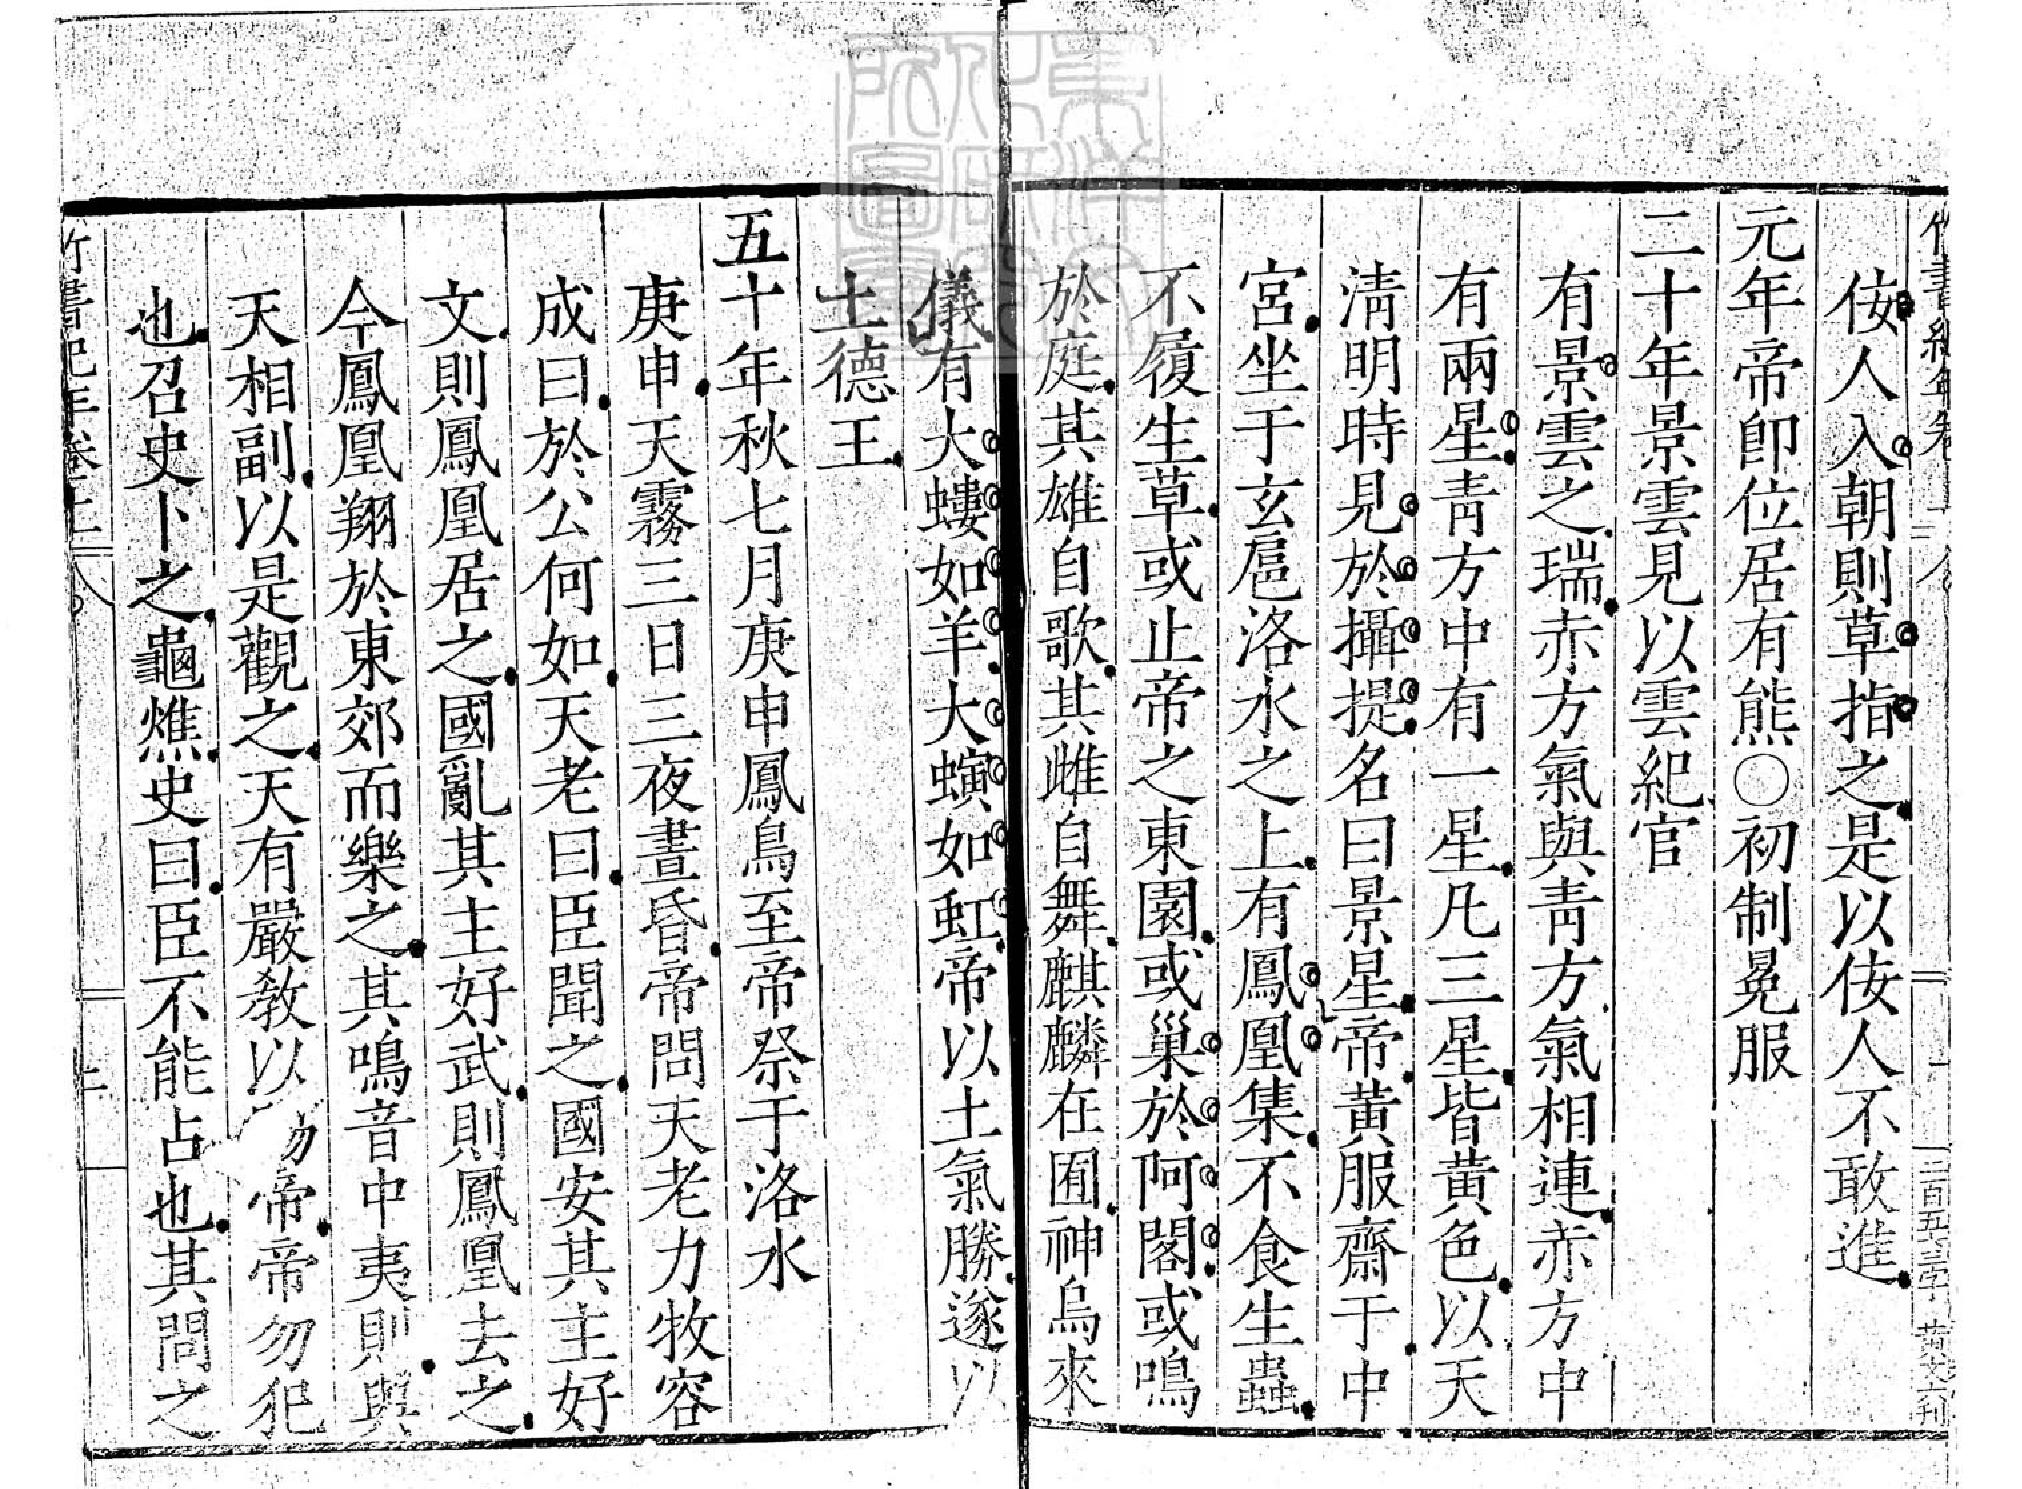 竹書紀年卷上
二百五十字
佞人入朝則草指之是以佞人不敢進
元年帝卽位居有熊○初制冕服
二十年景雲見以雲紀官
有景雲之瑞赤方氣與青方氣相連赤方中
有兩星青方中有一星凡三星皆黃色以天
清明時見於攝提名曰景星帝黃服齋于中
宮坐于玄扈洛水之上有鳳凰集不食生蟲
不履生草或止帝之東園或巢於阿閣或鳴
於庭其雄自歌其雌自舞麒麟在囿神鳥來
儀有大螻如羊大螾如虹帝以土氣勝遂以
土德王
五十年秋七月庚申鳳鳥至帝祭于洛水
庚申天霧三日三夜晝昏帝問天老力牧容
成曰於公何如天老曰臣聞之國安其主好
文則鳳凰居之國亂其主好武則鳳凰去之
今鳳凰翔於東郊而樂之其鳴音中夷則與
天相副以是觀之天有嚴教以帝帝勿犯
也召史卜之龜燋史曰臣不能占也其問之
竹書紀年卷上